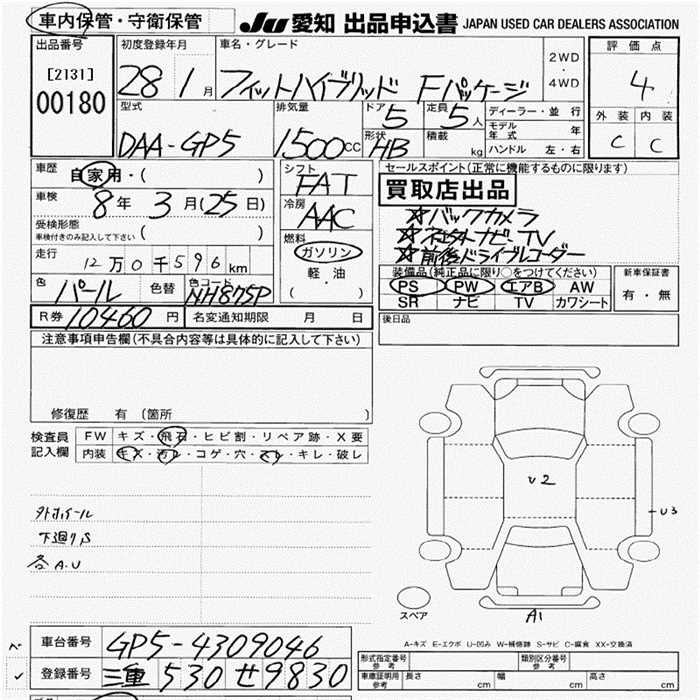 車内保管・守衛保管 JU 愛知 出品申込書 JAPAN USED CAR DEALERS ASSOCIATION
出品番号 初度登録年月 車名・グレード 評価点
[2131] 00180 28年 1月 フィットハイブリッド Fパッケージ 2WD・4WD 4
型式 排気量 ドア 5 定員 5人 ディーラー・並行 外装 内装
DAA-GP5 1500cc 形状 HB 積載 kg モデル年式 年 C C
ハンドル 左・右
車歴 自家用・( ) シフト FAT セールスポイント(正常に機能するものに限ります)
買取店出品
車検 8年 3月(25日) 冷房 AAC ☆バックカメラ
受検形態 車検付きのみ記入して下さい ( ) 燃料 ☆社外ナビ TV
ガソリン ☆前後ドライブレコーダー
走行 12万0千596km 軽油 装備品(純正品に限り○をつけてください) 新車保証書
色 パール 色替 色コード NH875P ( ) PS PW エアB AW 有・無
SR ナビ TV カワシート
R券 10460円 名変通知期限 月 日 後日品
注意事項申告欄(不具合内容等は具体的に記入して下さい)
修復歴 有 (箇所 )
検査員 FW キズ・飛石・ヒビ割・リペア跡・X要
記入欄 内装 キズ・汚レ・コゲ・穴・スレ・キレ・破レ
U2
U3
外ホイール
下廻りS
各A.U
スペア A1
A-キズ E-エクボ U-凹み W-補修跡 S-サビ C-腐食 XX-交換済
車台番号 GP5-4309046
登録番号 三重 530 せ 9830
形式指定番号 参考 類別区分番号 参考
車庫証明用 参考 長さ cm 幅 cm 高さ cm